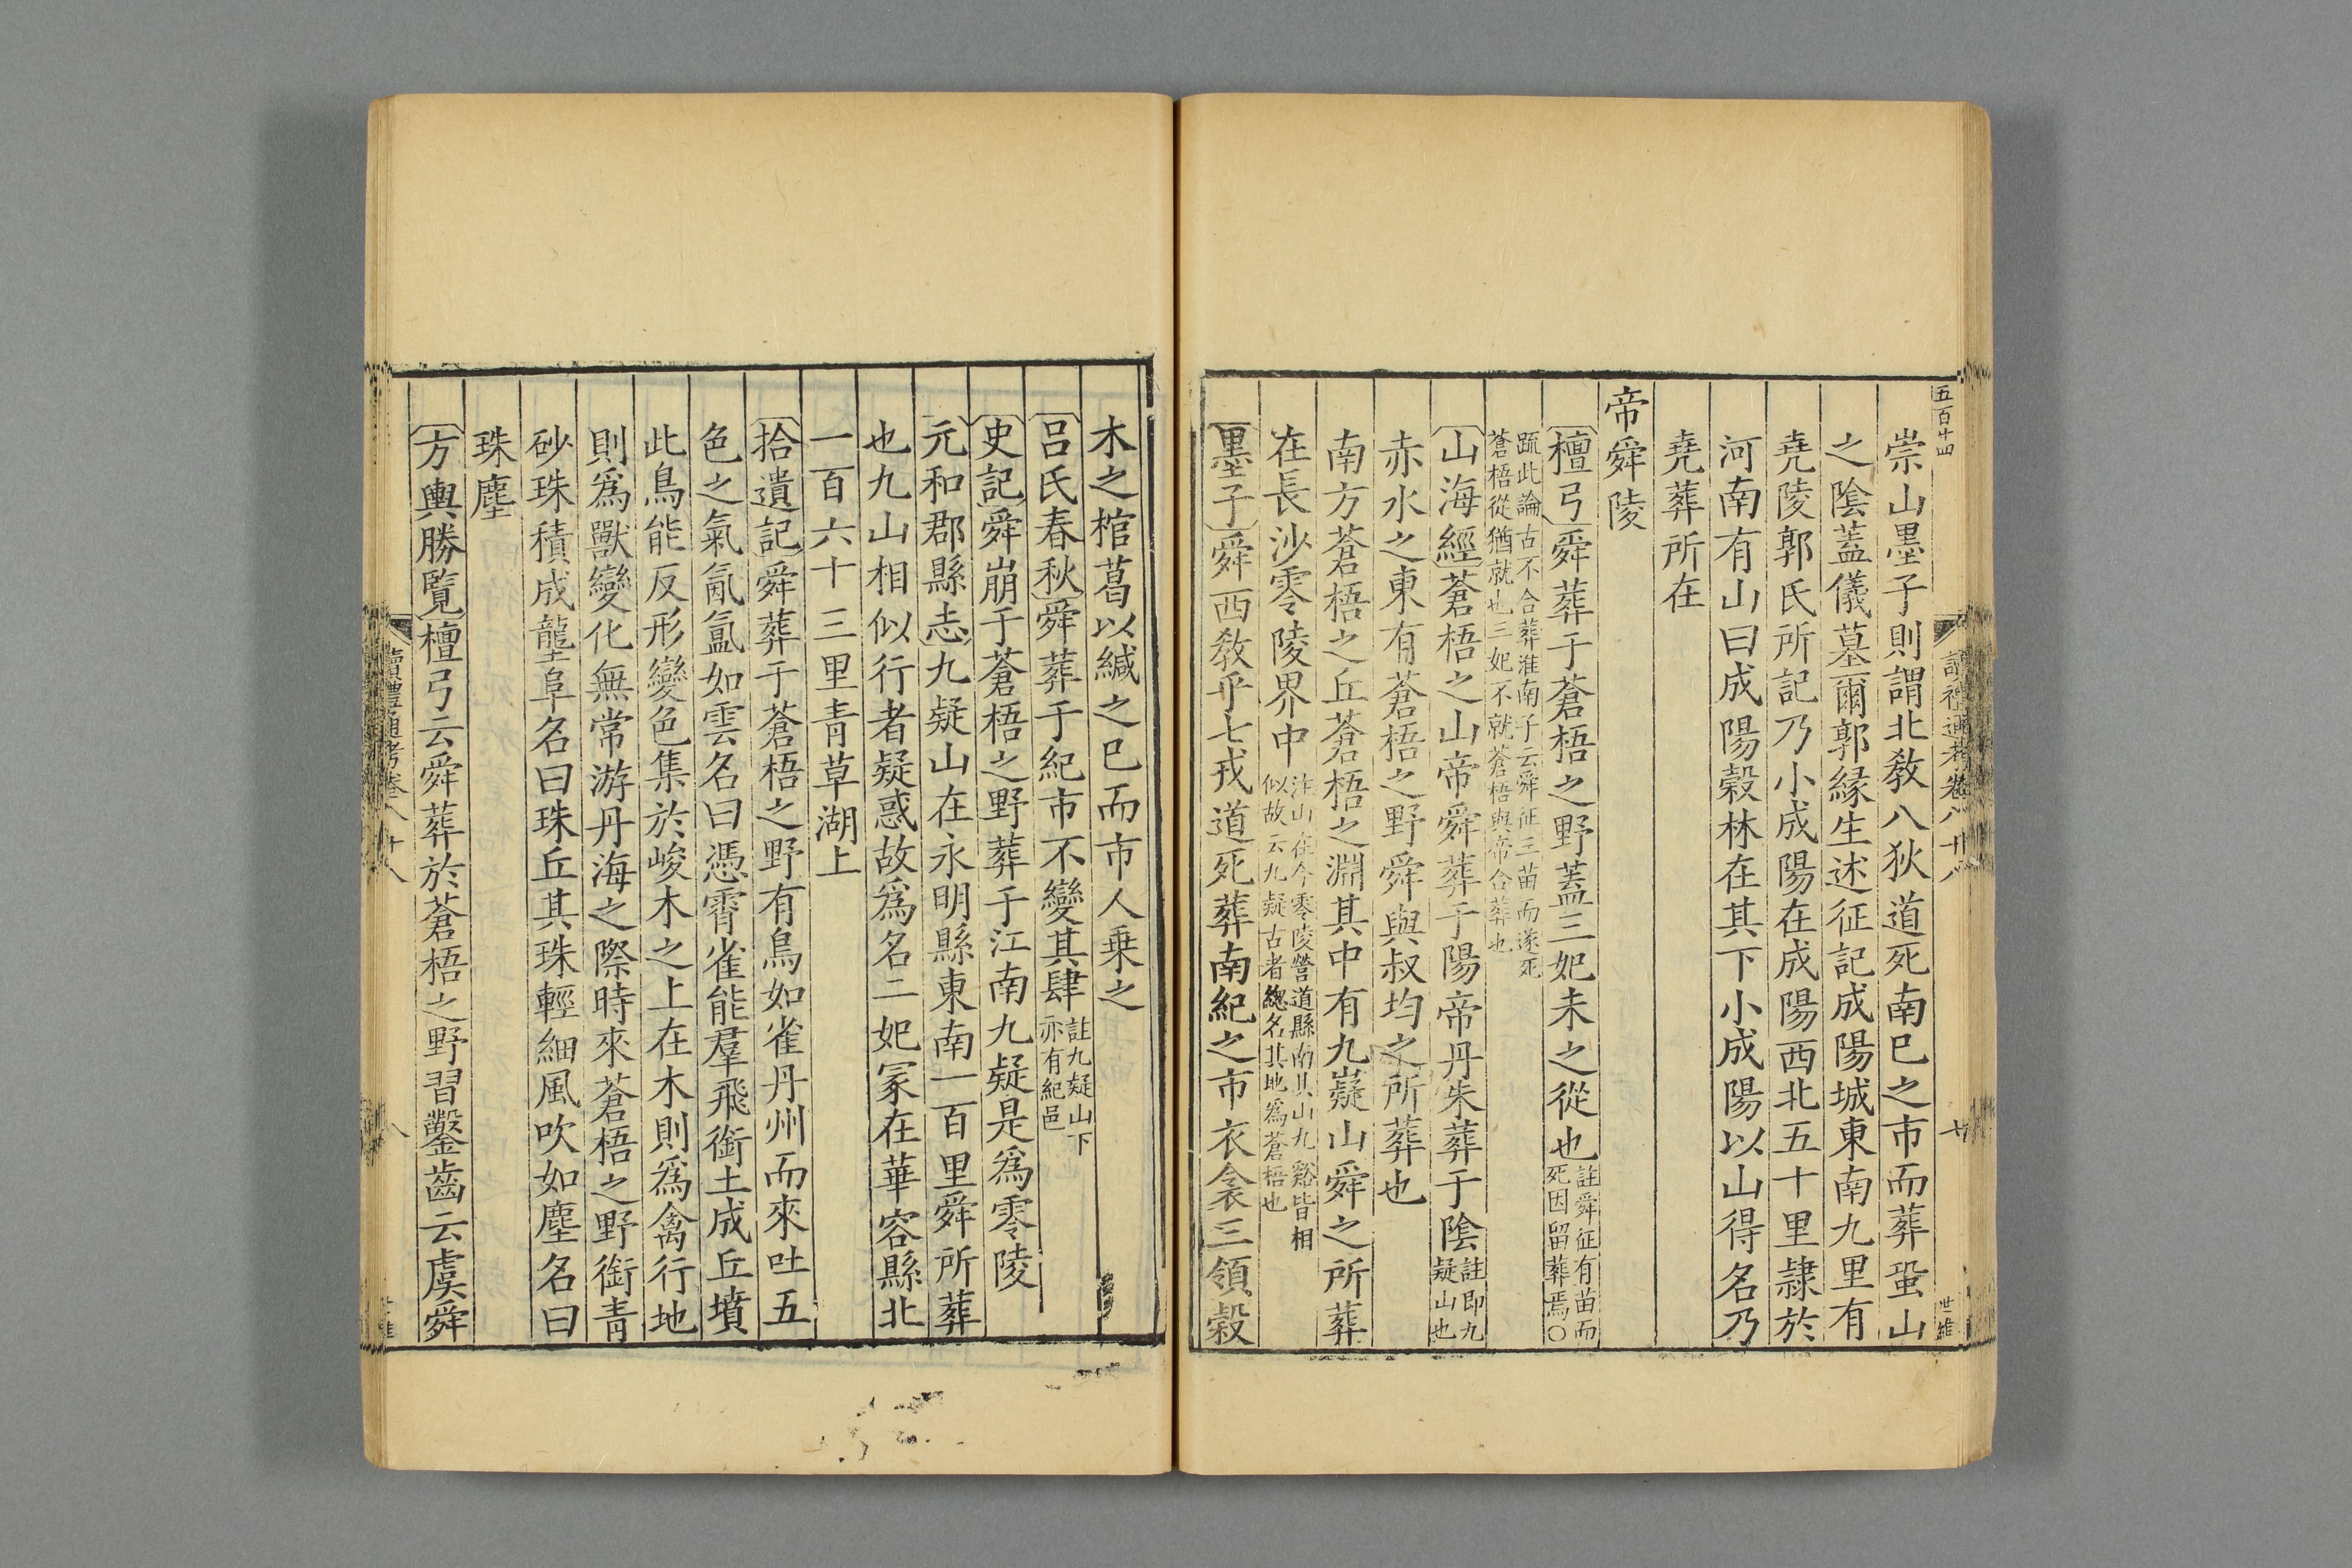 五百十四
崇山墨子則謂北教八狄道死南巳之市而葬蛩山
之陰蓋儀墓爾郭緣生述征記成陽城東南九里有
堯陵郭氏所記乃小成陽在成陽西北五十里隷於
河南有山曰成陽穀林在其下小成陽以山得名乃
堯葬所在
帝舜陵
檀弓舜葬于蒼梧之野蓋三妃未之從也註舜征有苗而
死因留葬焉○
䟽此論古不合葬淮南子云舜征三苗而遂死
蒼梧從猶就也三妃不就蒼梧與帝合葬也
山海經蒼梧之山帝舜葬于陽帝丹朱葬于陰註即九
疑山也
赤水之東有蒼梧之野舜與叔均之所葬也
南方蒼梧之丘蒼梧之淵其中有九嶷山舜之所葬
在長沙零陵界中注山在今零陵營道縣南其山九谿皆相
似故云九疑古者總名其地爲蒼梧也
墨子舜西教乎七戎道死葬南紀之市衣衾三領穀
木之棺葛以緘之已而市人乗之
呂氏春秋舜葬于紀市不變其肆註九疑山下
亦有紀邑
史記舜崩于蒼梧之野葬于江南九疑是爲零陵
元和郡縣志九疑山在永明縣東南一百里舜所葬
也九山相似行者疑惑故爲名二妃冢在華容縣北
一百六十三里青草湖上
拾遺記舜葬于蒼梧之野有鳥如雀丹州而來吐五
色之氣氤氳如雲名曰憑霄雀能羣飛銜土成丘墳
此鳥能反形變色集於峻木之上在木則爲禽行地
則爲獸變化無常游丹海之際時來蒼梧之野銜青
砂珠積成壟阜名曰珠丘其珠輕細風吹如塵名曰
珠塵
方輿勝覽檀弓云舜葬於蒼梧之野習鑿齒云虞舜